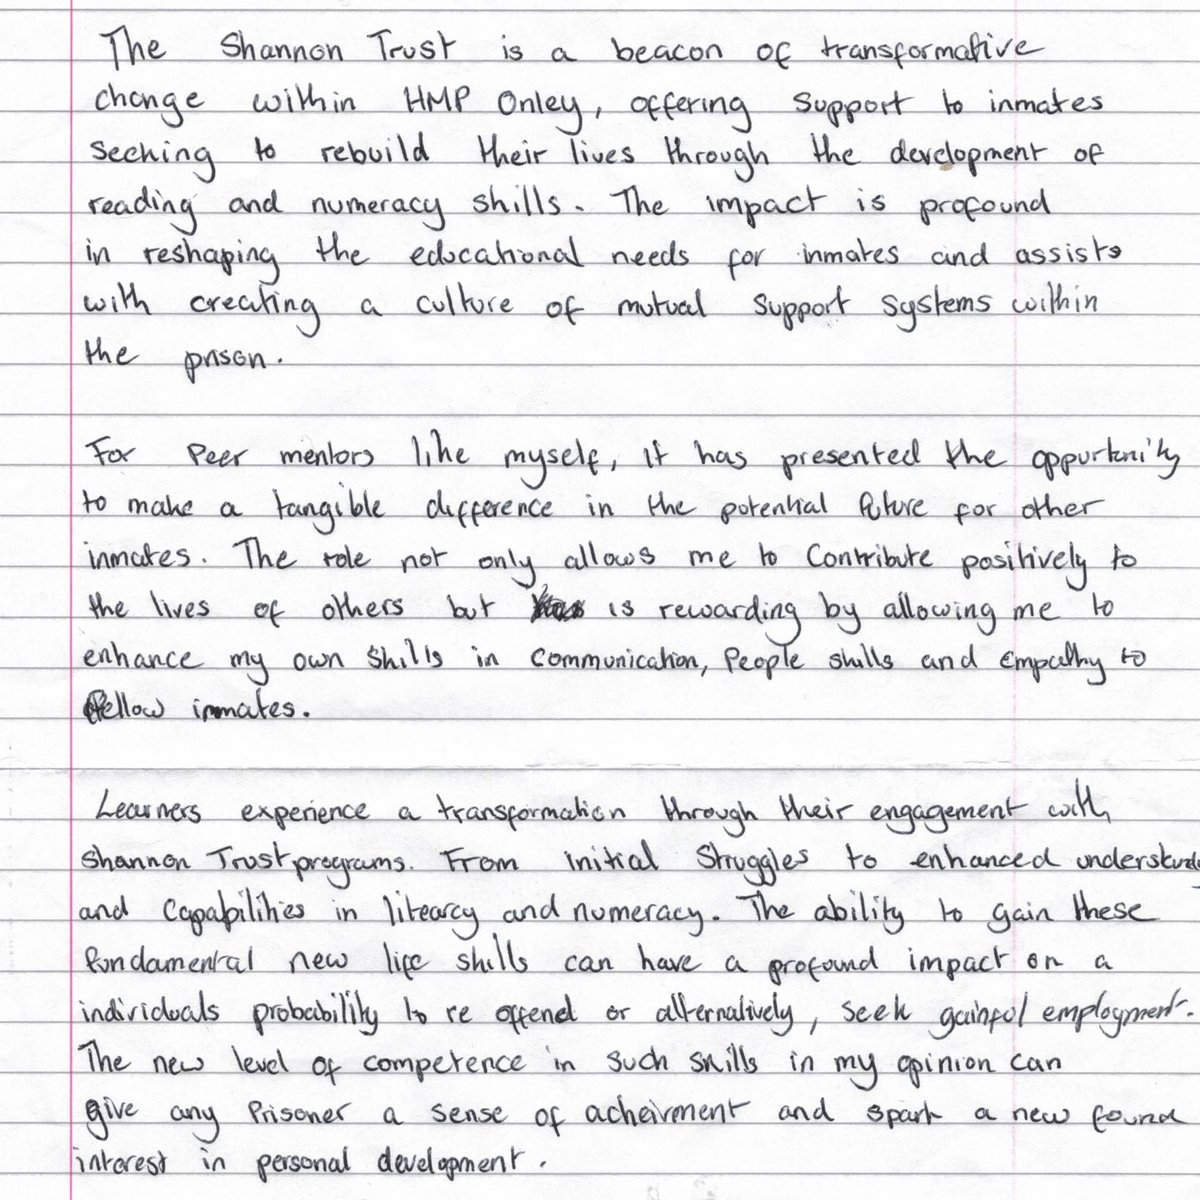 The Shannon Trust is a beacon of transformative
change within HMP Onley, offering support to inmates
seeking to rebuild their lives through the development of
reading and numeracy skills. The impact is profound
in reshaping the educational needs for inmates and assists
with creating a culture of mutual support systems within
the prison.
For Peer mentors like myself, it has presented the oppurtunity
to make a tangible difference in the potential future for other
inmates. The role not only allows me to contribute positively to
the lives of others but is rewarding by allowing me to
enhance my own skills in communication, People skills and empathy to
fellow inmates.
Learners experience a transformation through their engagement with
Shannon Trust programs. From initial struggles to enhanced
and capabilities in litearcy and numeracy. The ability to gain these
fundamental new life skills can have a profound impact on a
individuals probability to re offend or alternatively, seek gainful employment.
The new level of competence in such skills in my opinion can
give any Prisoner a sense of acheivment and spark a new found
interest in personal development.